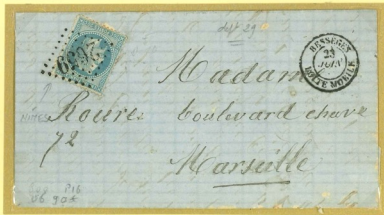 2659
BESSEGES
23
JUIN
BOITE MOBILE
Madame
Roure boulevard chave
72
Marseille